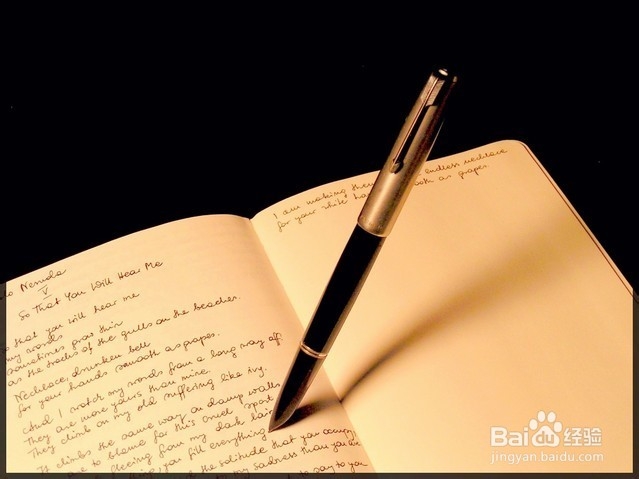 Neruda
V
So That You Will Hear Me
that you will hear me
my words
sometimes grow thin
as the tracks of the gulls on the beaches.
Necklace, drunken bell
for your hands smooth as grapes.
And I watch my words from a long way off.
They are more yours than mine.
They climb on my old suffering like ivy.
It climbs the same way on damp walls
to blame for this cruel sport
fleeing from my dark lair
you fill everything
the solitude that you occupy
my sadness than you are
to say to you
I am making them endless necklace
for your white as grapes.
Bai du 经验
jingyan.baidu.com